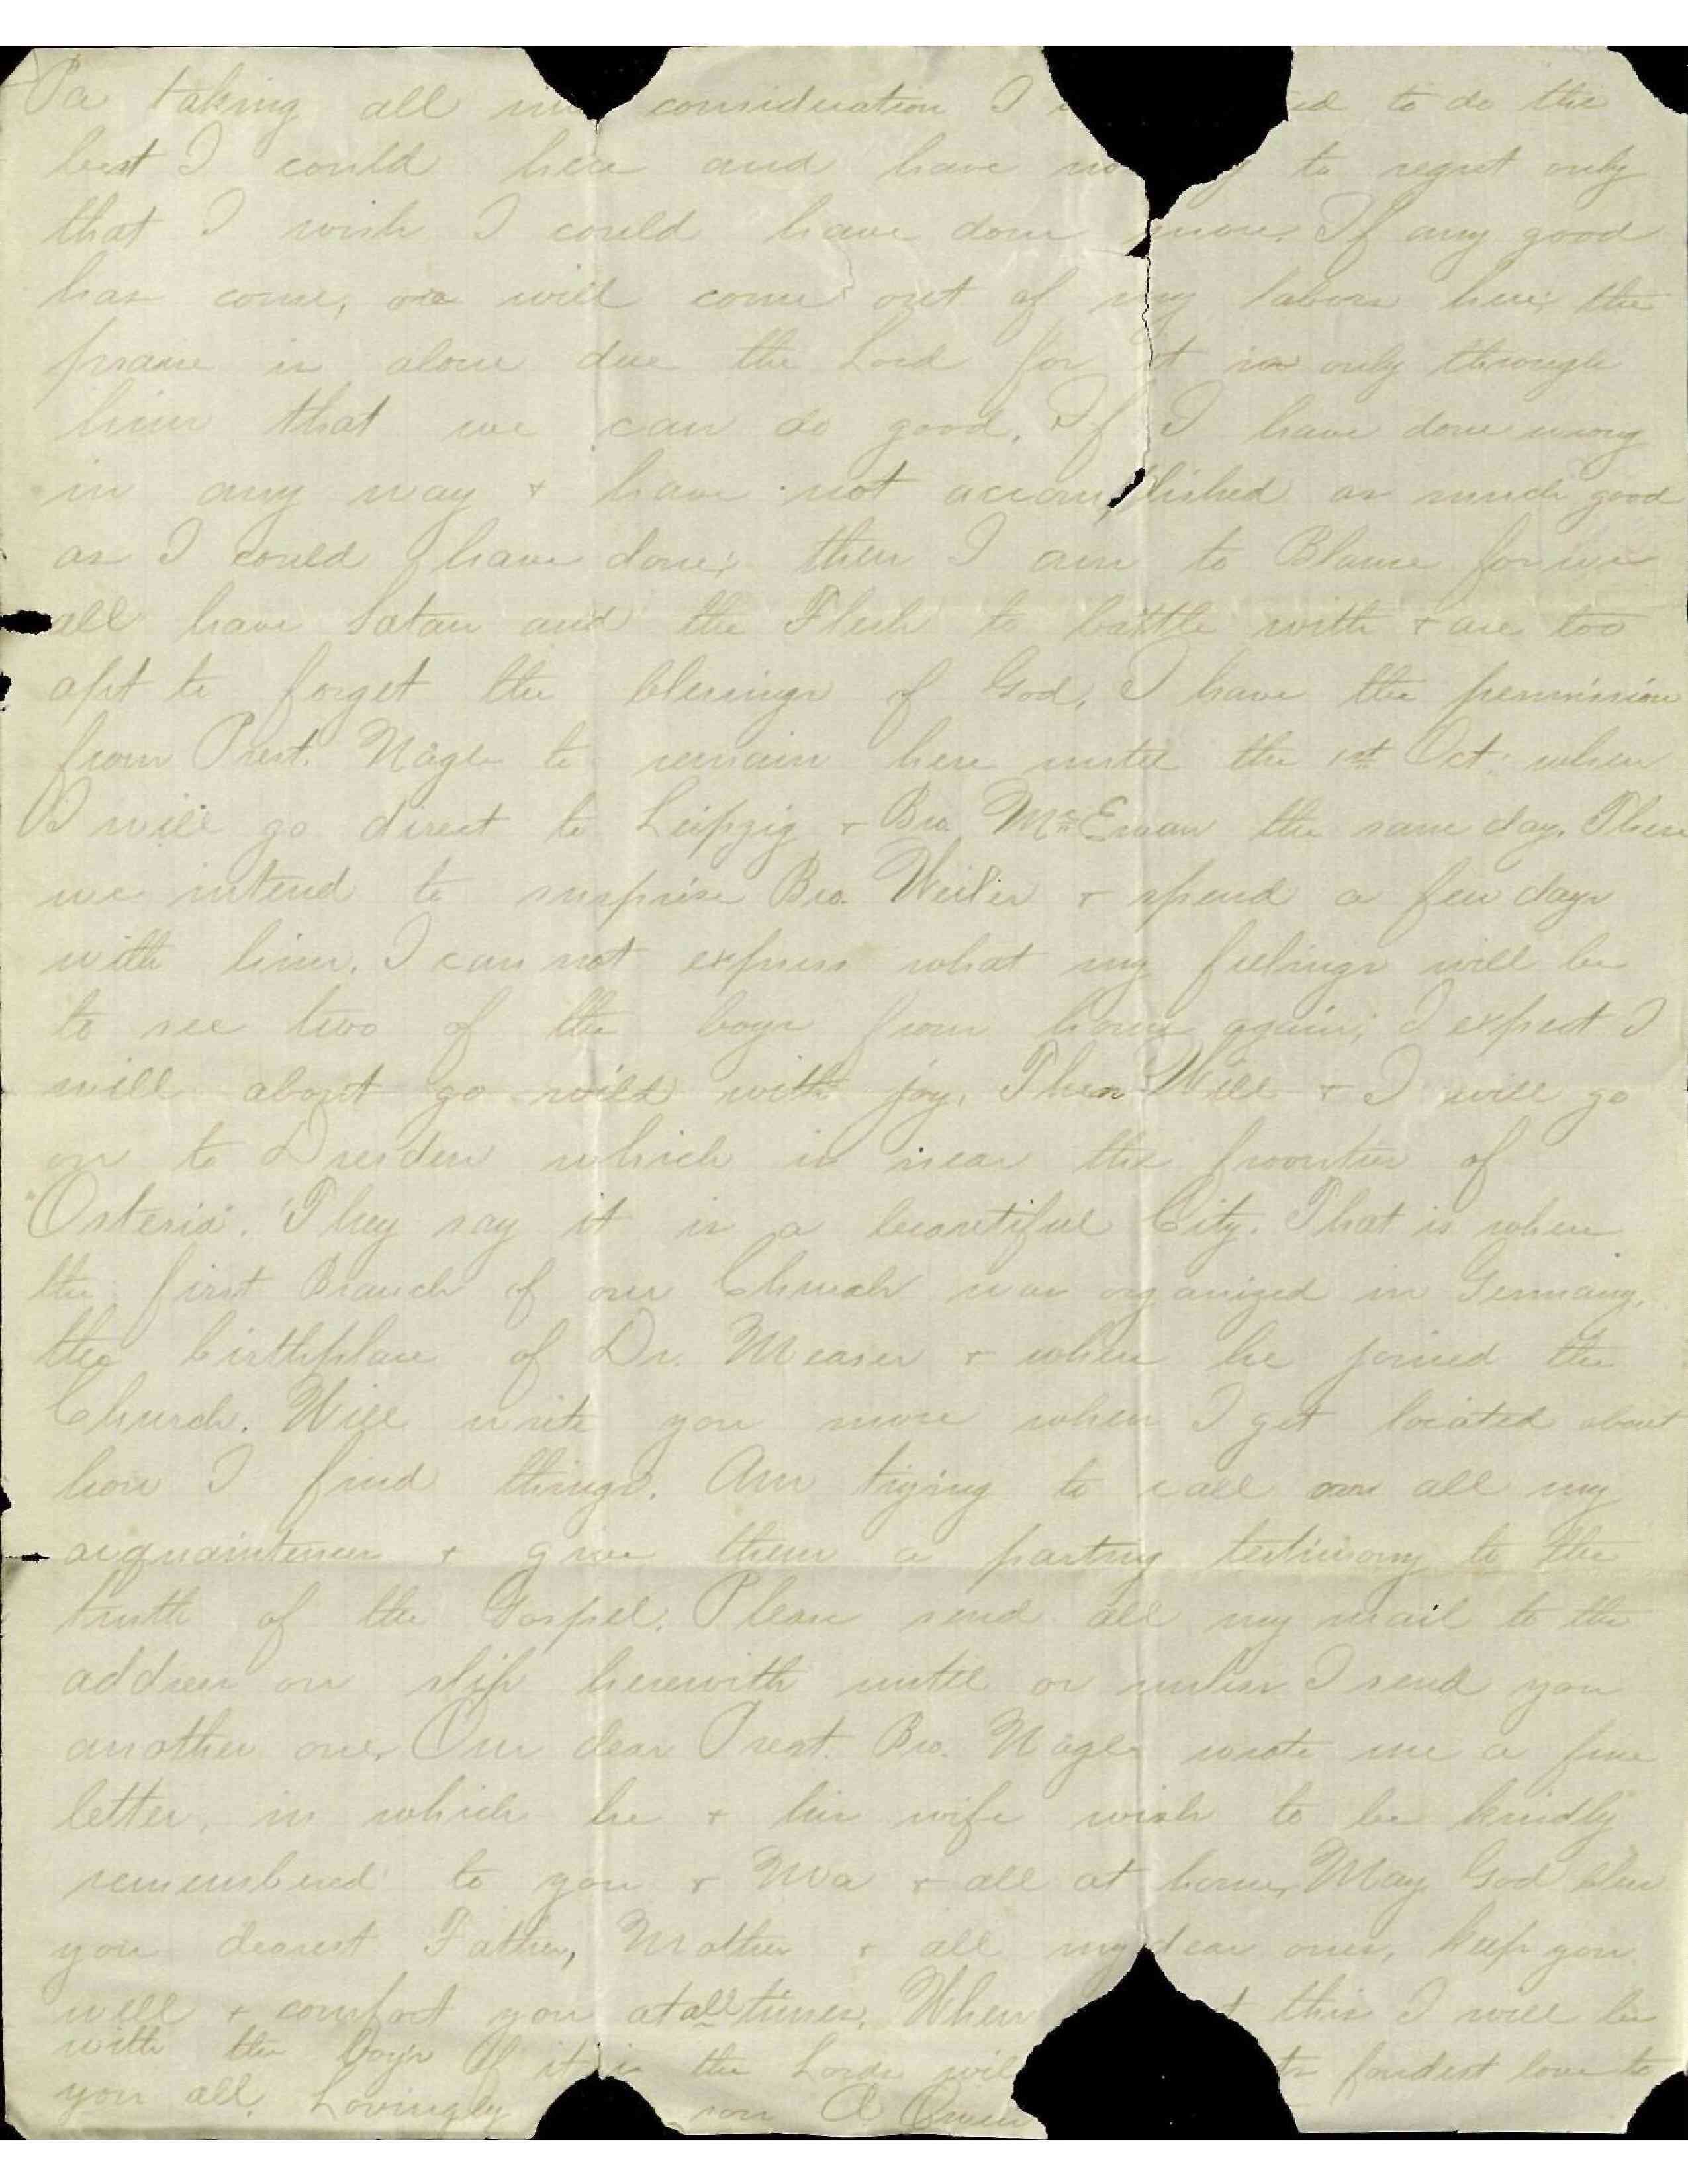 Pa taking all consideration I to do the
best I could here and have to regret only
that I wish I could have done more. If any good
has come, or will come out of my labors here, the
praise is alone due the Lord for it is only through
him that we can do good. If I have done wrong
in any way + have not accomplished as much good
as I could have done; then I am to Blame for we
all have Satan and the Flesh to battle with + are too
apt to forget the blessings of God. I have the permission
from Prest. Nägle to remain here until the 1st Oct. when
I will go direct to Leipzig + Bro. McEwan the same day. There
we intend to surprise Bro. Weiler + spend a few days
with him. I can not express what my feelings will be
to see two of the boys from home again; I expect I
will about go wild with joy. Then Will + I will go
on to Dresden which is near the froontier of
"Osteria". They say it is a beautiful City. That is where
the first Branch of our Church was organized in Germany,
the birthplace of Dr. Measer + where he joined the
Church. Will write you more when I get located about
how I find things. Am trying to call on all my
acquaintences + give them a parting testimony to the
truth of the Gospel. Please send all my mail to the
address on slip herewith until or unless I send you
another one. Our dear Prest. Bro. Nägle wrote me a fine
letter, in which he + his wife wish to be kindly
remembered to you + Ma + all at home. May God bless
you dearest Father, Mother + all my dear ones, keep you
well + comfort you at all times. When this I will be
with the boys if it is the Lords will fondest love to
you all. Lovingly son A Owen